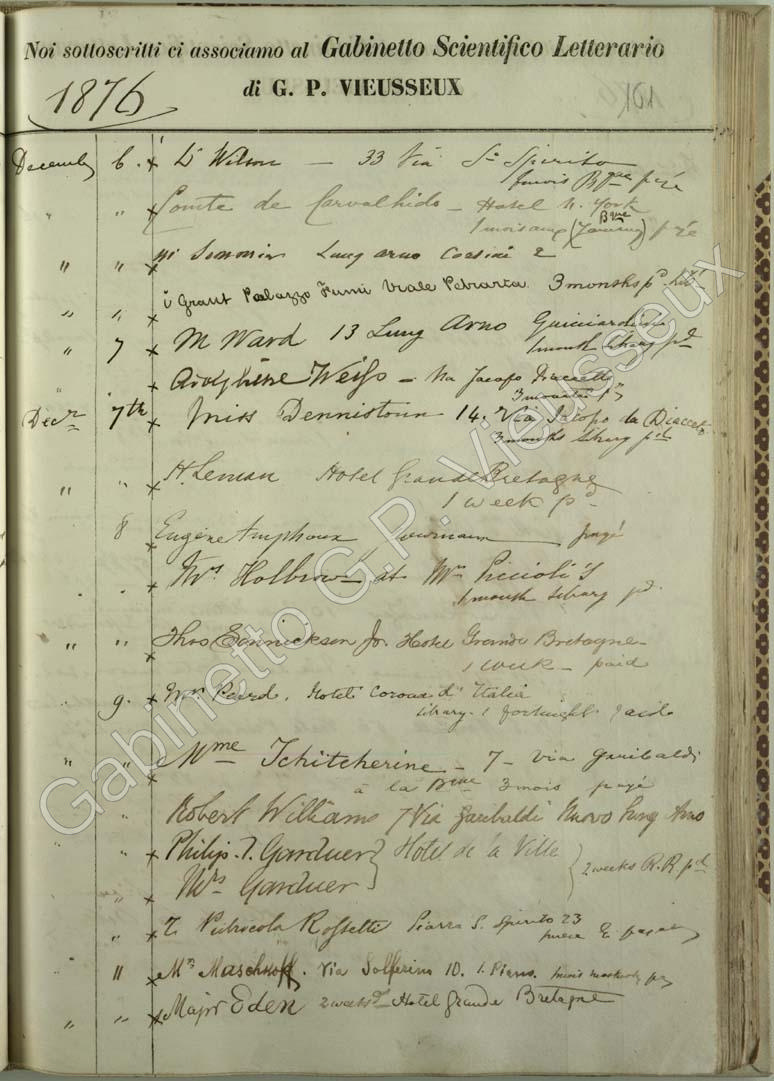 Noi sottoscritti ci associamo al Gabinetto Scientifico Letterario
di G. P. VIEUSSEUX
1876
101
December 6. x Dr Wilson — 33 Via Sto Spirito
Bque
" " x Comte de Carvalhido — Hotel N. York
1 mois aux Bque
" " x Lung arno Corsini 2
" " x Grant Palazzo Fumi Viale Petrarca. 3 months pd
" 7 x M Ward 13 Lung Arno Guicciardini
1 month library pd
" x Adolphine Weiss — Via Jacopo Diacceto
3
Decr 7th x Miss Dennistoun 14. Via Jacopo da Diacceto
3 months library pd
" " x H. Leman Hotel Grande Bretagne
1 week pd
8 x Eugène Amphoux payé
" . x Mrs Holbrow at Mrs Piccioli's
1 month library pd.
" " x Thos Jr. Hotel Grande Bretagne —
1 week — paid
. 9. x Peard. Hotel Couronne d'Italia
Library. 1 fortnight paid
" " x Mme Tchitcherine — 7 — Via Garibaldi
à la Bque 3 mois payé
" Robert Williams 7 Via Garibaldi Nuovo Lung Arno
" x Philip. T. Gardner } Hotel de la Ville } 2 weeks R.R. pd
" x Mrs Gardner
" x T. Pietrocola Rossetti Piazza S. Spirito 23
" 11 x Maschkoff. Via Solferino 10. 1. Piano.
" " x Major Eden 2 weeks Hotel Grande Bretagne
Gabinetto G.P. Vieusseux